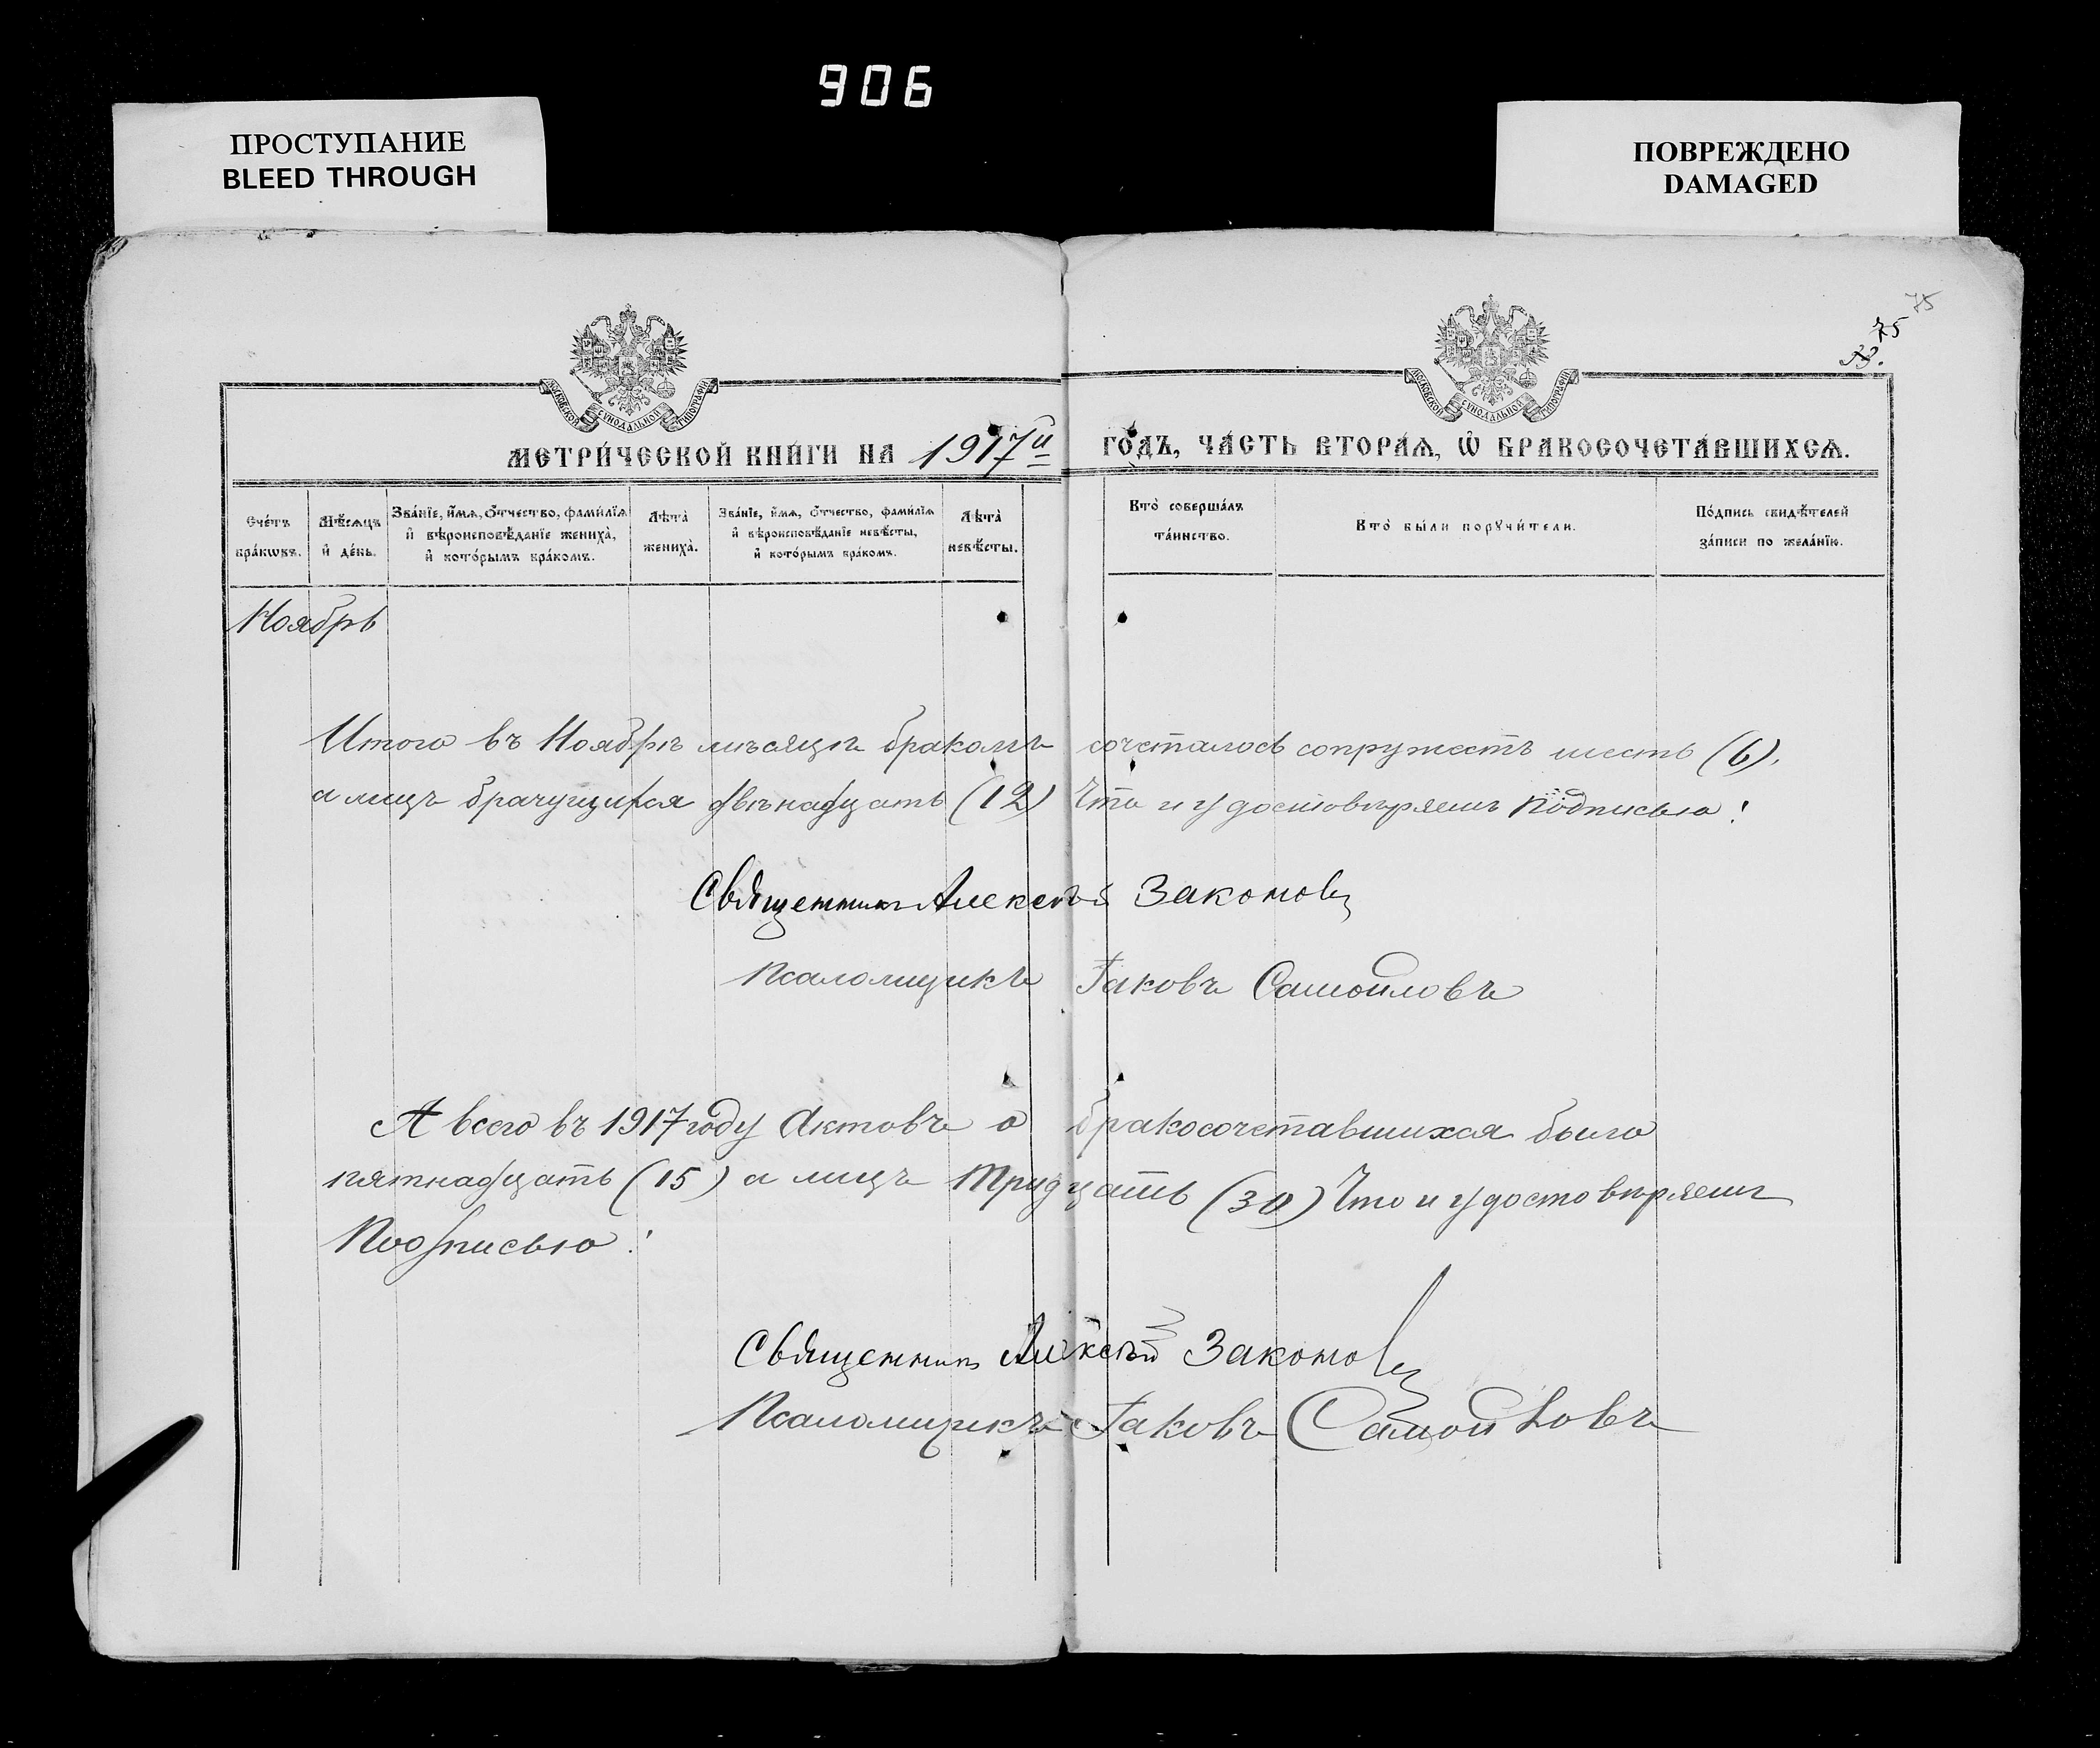 906
ПРОСТУПАНИЕ
BLEED THROUGH
ПОВРЕЖДЕНО
DAMAGED
75
75
МОСКОВСКОЙ СѴНОДАЛЬНОЙ ТИПОГРАФІИ
МОСКОВСКОЙ СѴНОДАЛЬНОЙ ТИПОГРАФІИ
МЕТРИ́ЧЕСКОЙ КНИ́ГИ НА 1917й ГО́ДЪ, ЧА́СТЬ ВТОРА́Ѧ, Ѡ҆ БРАКОСОЧЕТА́ВШИХСѦ.
Сче́тъ бра́кѡвъ.
Мѣ́сѧцъ и҆ де́нь.
Зва́нїе, и҆́мѧ, ѻ҆́тчество, фами́лїѧ и҆ вѣроисповѣ́данїе жениха̀, и҆ кото́рымъ бра́комъ.
Лѣта̀ жениха̀.
Зва́нїе, и҆́мѧ, ѻ҆́тчество, фами́лїѧ и҆ вѣроисповѣ́данїе невѣ́сты, и҆ кото́рымъ бра́комъ.
Лѣта̀ невѣ́сты.
Кто̀ соверша́лъ та́инство.
Кто̀ бы́ли порꙋчи́тели.
По́дпись свидѣ́телей за́писи по жела́нїю.
Ноябрь
Итого въ Ноябрѣ мѣсяцѣ бракомъ сочеталось супружествъ шесть (6),
а лицъ брачущихся двѣнадцать (12) Что и удостовѣряемъ подписью:
Священникъ Алексѣй Законовъ
Псаломщикъ Іаковъ Самойловъ
А всего въ 1917 году Актовъ о бракосочетавшихся было
пятнадцать (15) а лицъ Тридцать (30) Что и удостовѣряемъ
Подписью:
Священникъ Алексѣй Законовъ
Псаломщикъ Іаковъ Самойловъ